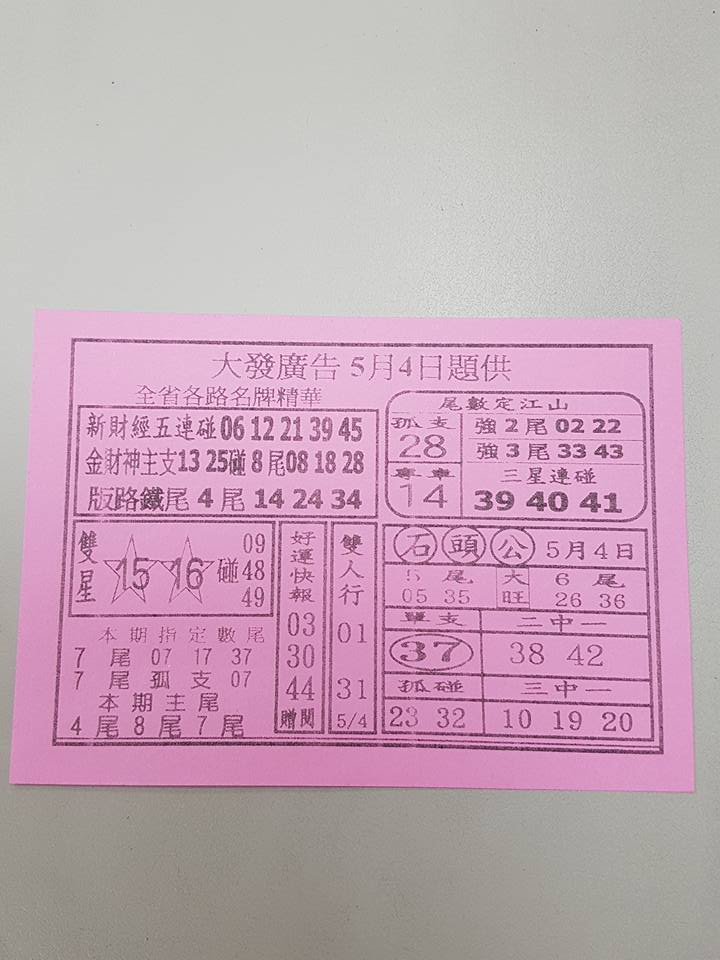 大發廣告 5月4日題供
全省各路名牌精華
新財經五連碰 06 12 21 39 45
金財神主支 13 25 碰 8 尾 08 18 28
版路鐵尾 4 尾 14 24 34
尾數定江山
孤支
28
專車
14
強 2 尾 02 22
強 3 尾 33 43
三星連碰
39 40 41
雙星
15 16 碰
09
48
49
本期指定數尾
7 尾 07 17 37
7 尾 孤 支 07
本期主尾
4 尾 8 尾 7 尾
好運快報
03
30
44
贈閱
雙人行
01
31
5/4
石頭公 5月4日
5 尾
05 35
大旺
6 尾
26 36
單支
37
二中一
38 42
孤碰
23 32
三中一
10 19 20